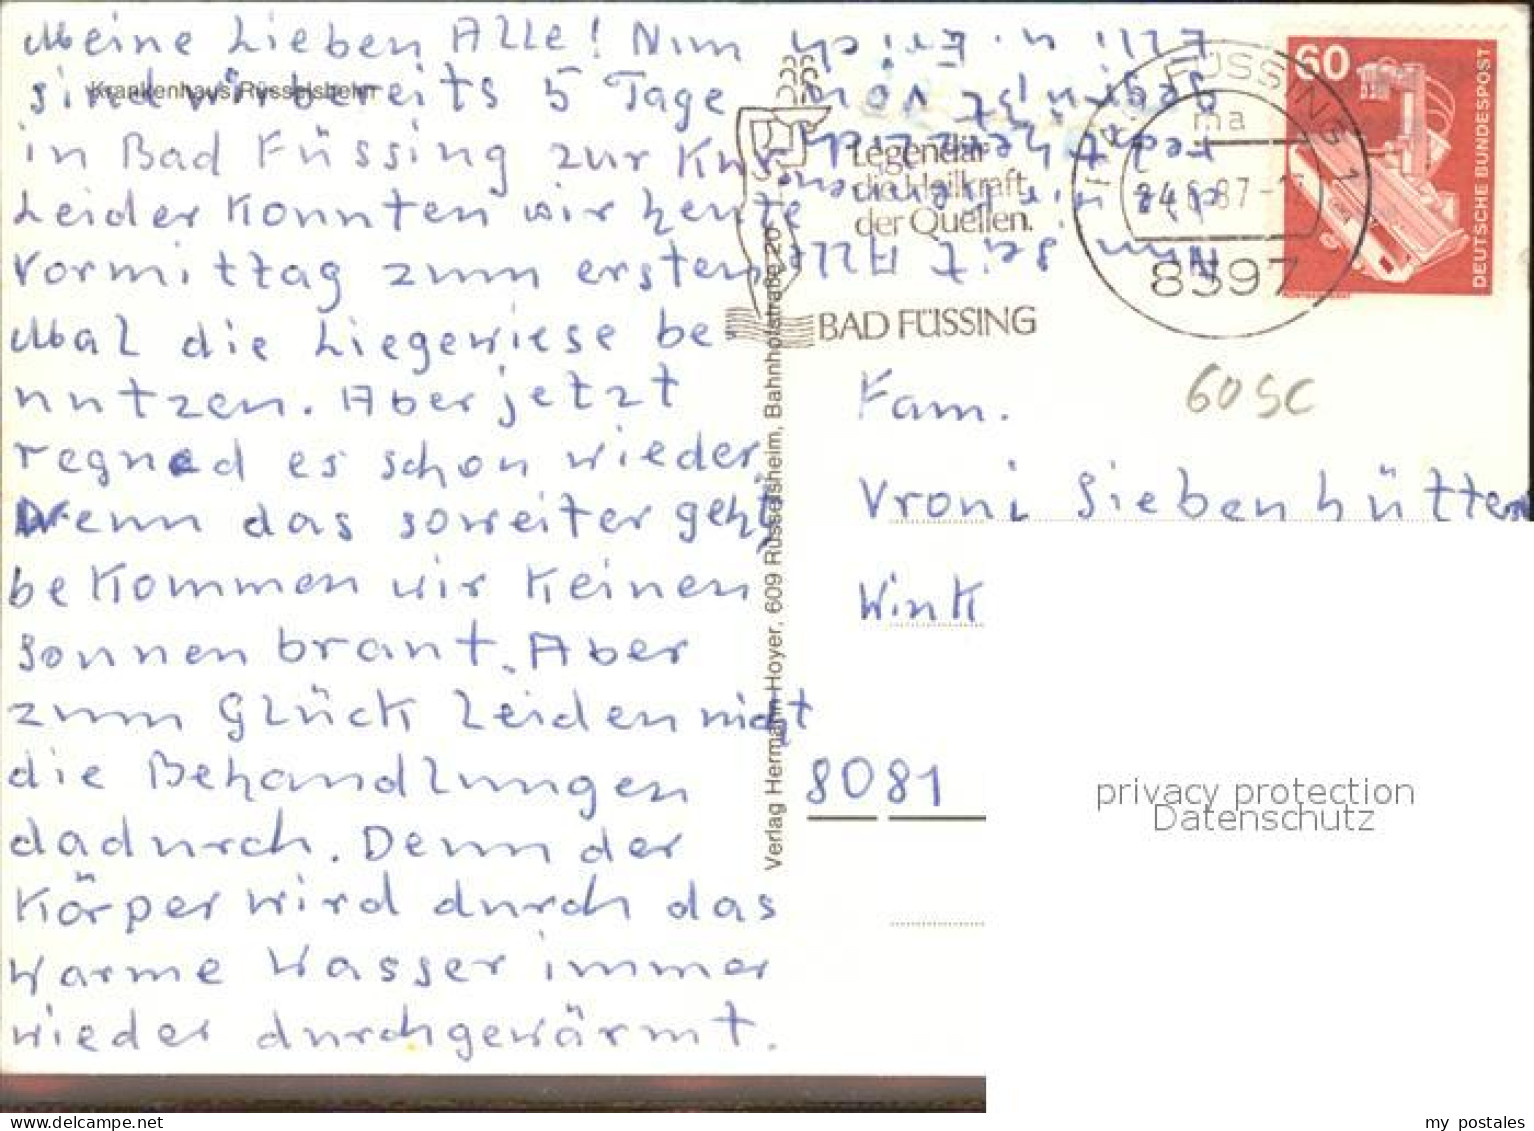 Meine Lieben Alle! Nun
Krankenhaus Rüsselsheim
sind wir bereits 5 Tage
in Bad Füssing zur Kur.
Leider konnten wir heute
Vormittag zum ersten
Mal die Liegewiese be-
nutzen. Aber jetzt
regned es schon wieder
Wenn das soweiter geht,
bekommen wir keinen
Sonnenbrant. Aber
zum Glück leiden nicht
die Behandlungen
dadurch. Denn der
Körper wird durch das
warme Wasser immer
wieder durchgewärmt.
Nun seit Alle
recht herzlich
gegrüßt von
Elli u. Erich
Verlag Hermann Hoyer, 609 Rüsselsheim, Bahnhofstraße 20
Legendär
die Heilkraft
der Quellen.
BAD FÜSSING
FÜSSING 1
ma
24.6.87-1
8397
60
DEUTSCHE BUNDESPOST
60 SC
Fam.
Vroni Siebenhütter
Wink
8081
privacy protection
Datenschutz
my postales